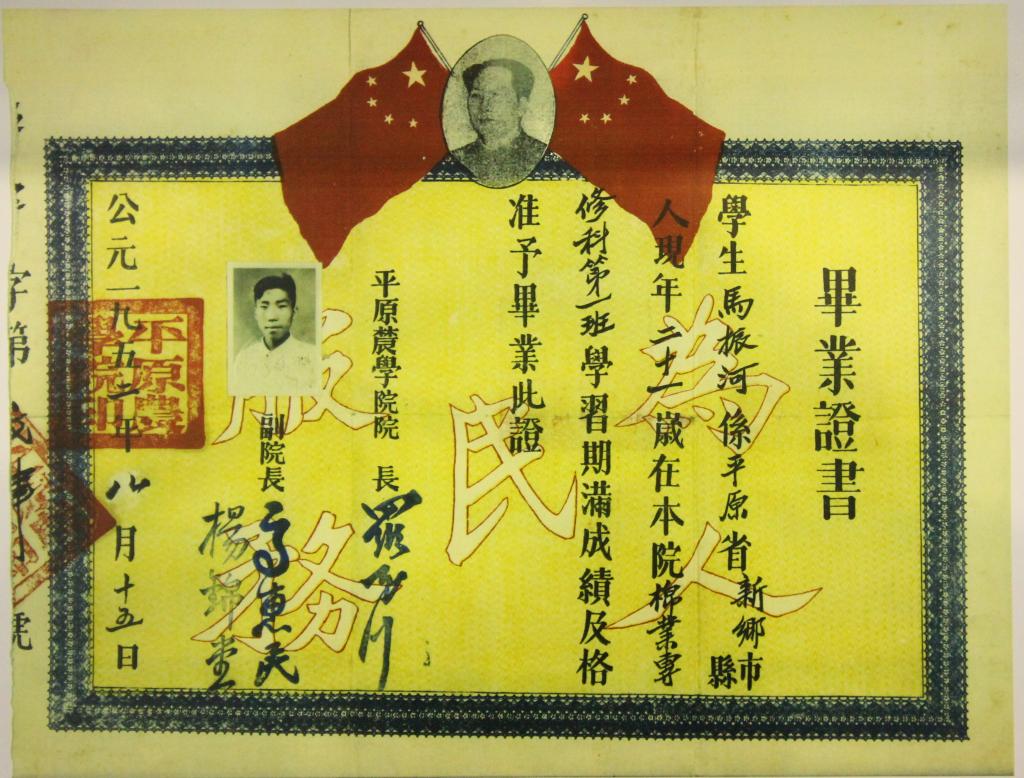 畢業證書
學生馬振河係平原省新鄉市縣
人現年二十一歲在本院棉業專
修科第一班學習期滿成績及格
准予畢業此證
平原農學院院長 羅
副院長 惠民
楊錦堂
公元一九五二年八月十五日
字第 號
為人民服務
平原農學院印